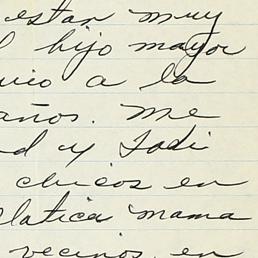 estan muy
hijo mayor
a la
años. me
d y Todi
chicos en
latica mama
vecinos en